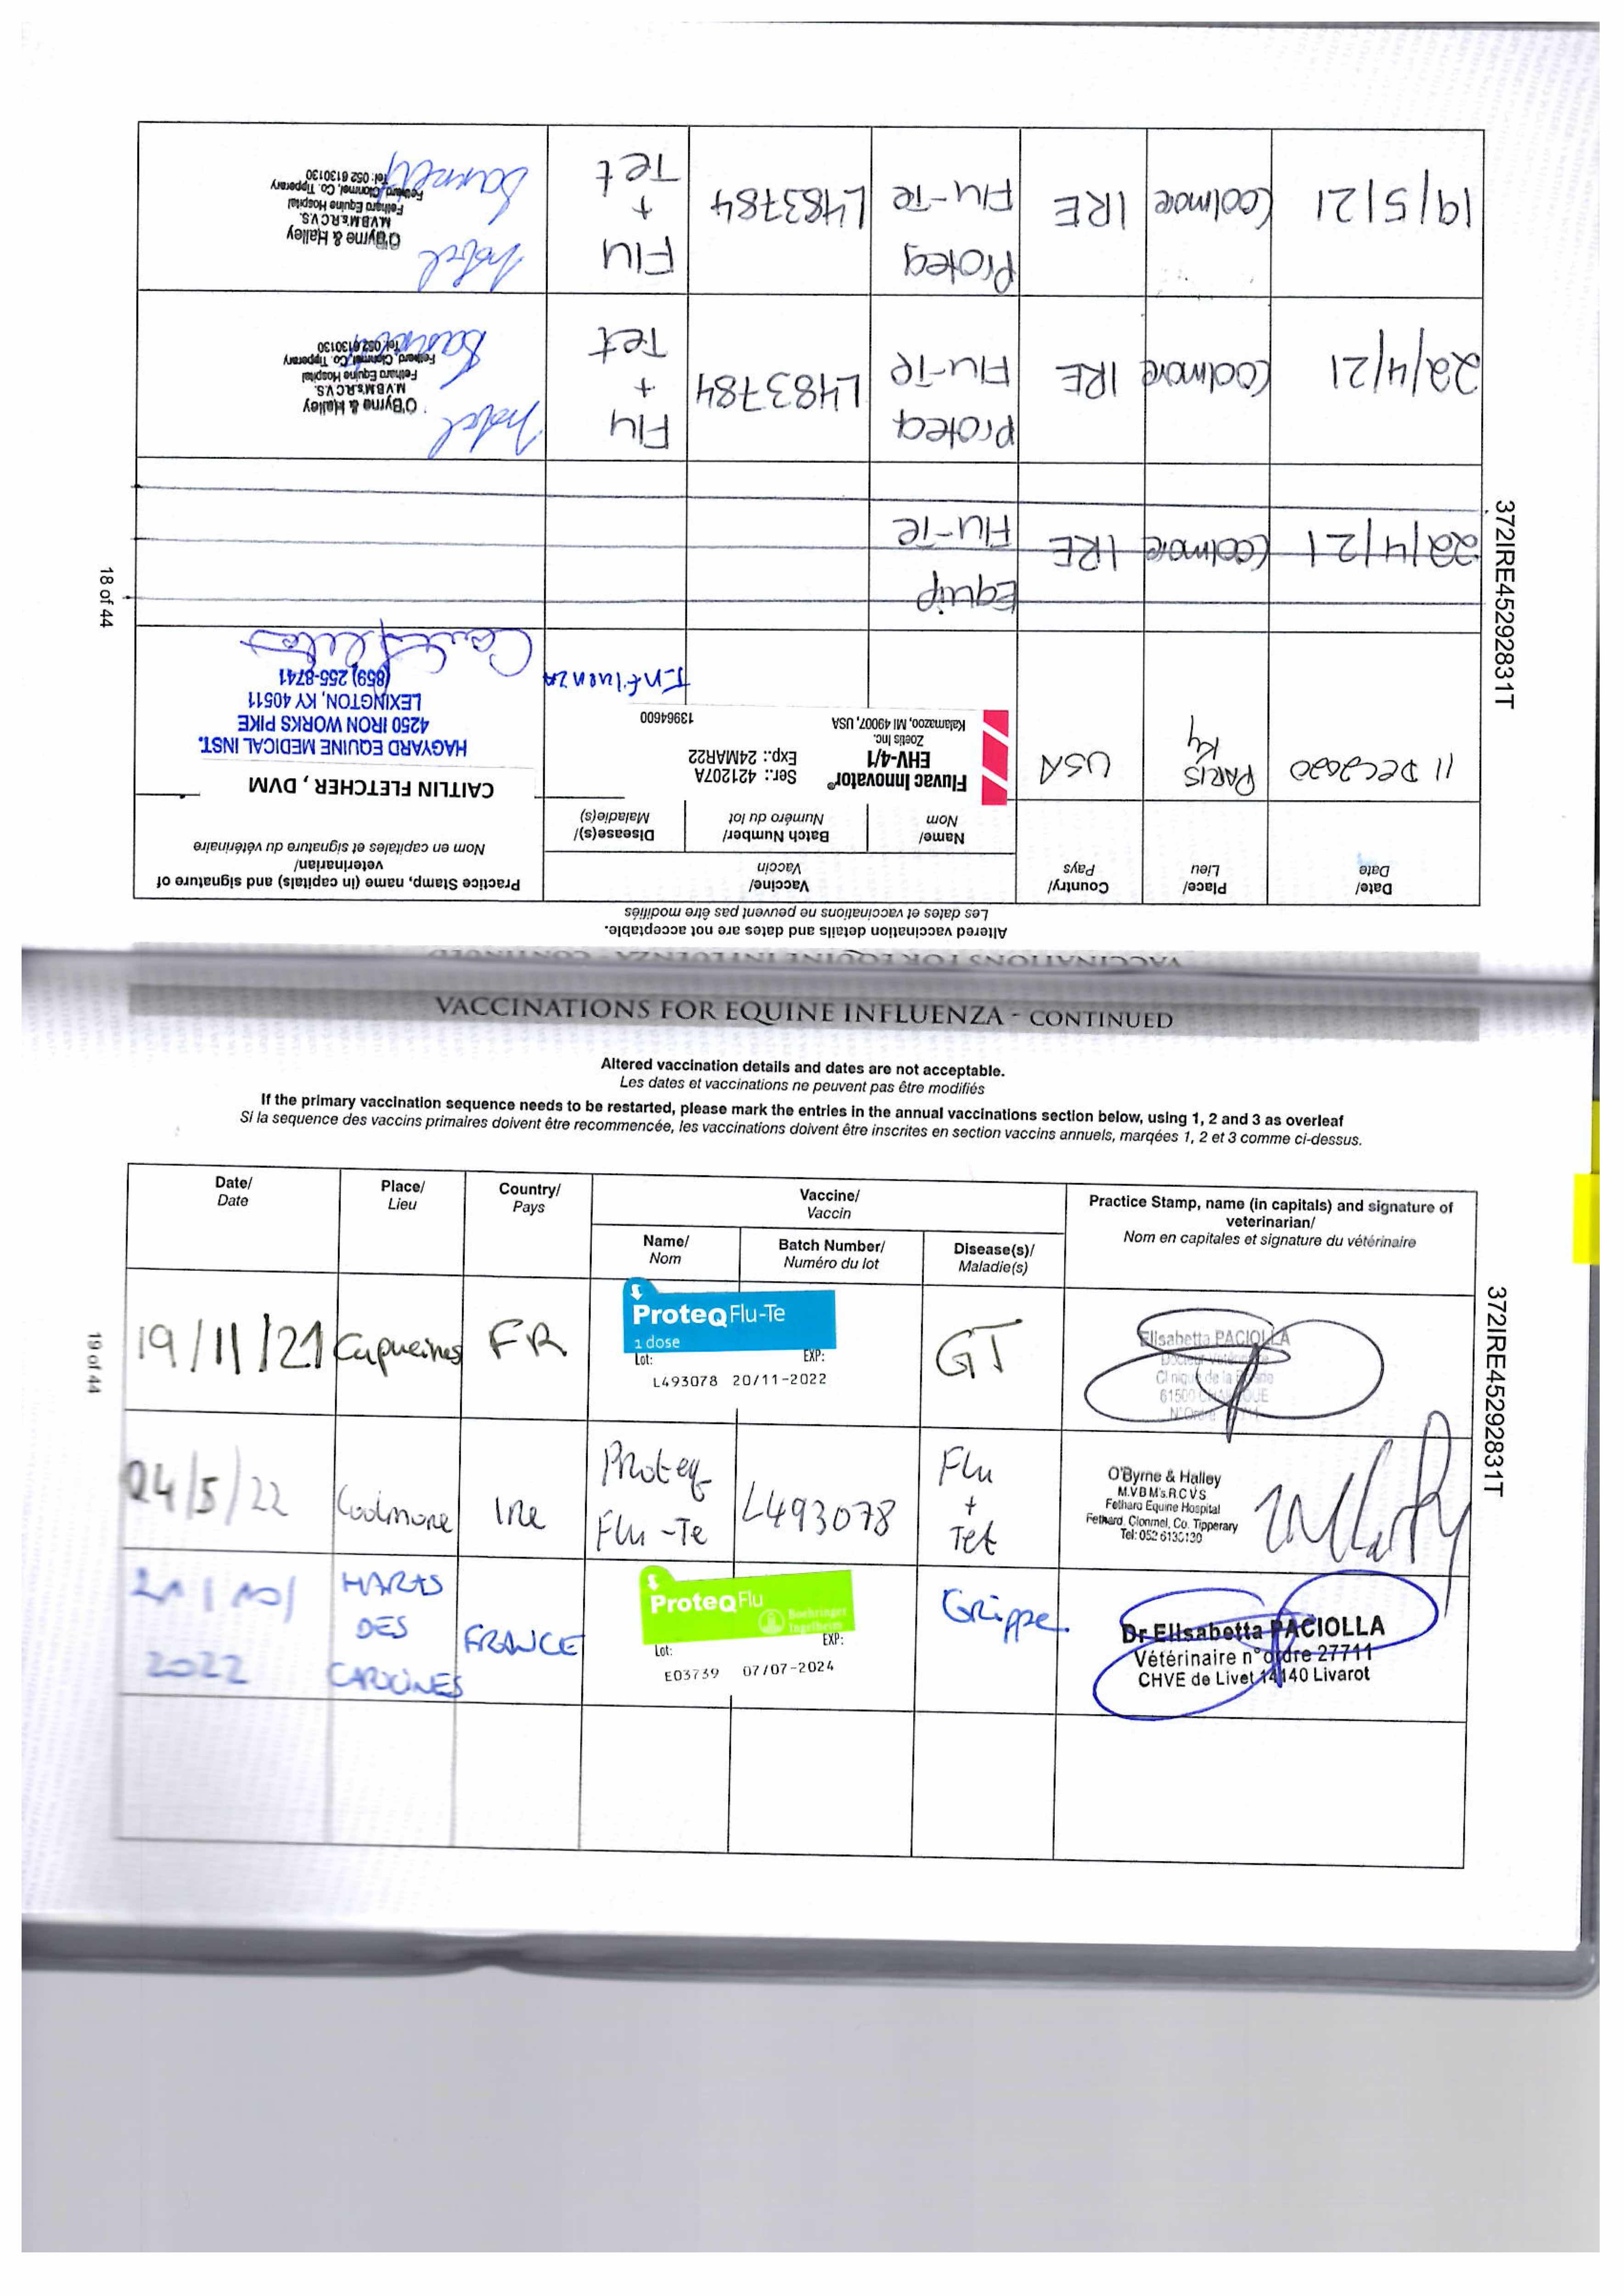 VACCINATIONS FOR EQUINE INFLUENZA - CONTINUED
Altered vaccination details and dates are not acceptable.
Les dates et vaccinations ne peuvent pas être modifiés
Date/
Date
Place/
Lieu
Country/
Pays
Vaccine/
Vaccin
Name/
Nom
Batch Number/
Numéro du lot
Disease(s)/
Maladie(s)
Practice Stamp, name (in capitals) and signature of
veterinarian/
Nom en capitales et signature du vétérinaire
11 DEC 2020
PARIS
Ky
USA
Fluvac Innovator®
EHV-4/1
Zoetis Inc.
Kalamazoo, MI 49007, USA
Ser.: 421207A
Exp.: 24MAR22
13964600
Influenza
CAITLIN FLETCHER, DVM
HAGYARD EQUINE MEDICAL INST.
4250 IRON WORKS PIKE
LEXINGTON, KY 40511
(859) 255-8741
22/4/21
Coolmore
IRE
Equip
Flu-Te
22/4/21
Coolmore
IRE
Proteq
Flu-Te
L483784
Flu
+
Tet
O'Byrne & Halley
M.V.B M's R.C.V.S.
Fethard Equine Hospital
Fethard, Clonmel, Co. Tipperary
Tel: 052 6130130
19/5/21
Coolmore
IRE
Proteq
Flu-Te
L483784
Flu
+
Tet
O'Byrne & Halley
M.V.B M's R.C.V.S.
Fethard Equine Hospital
Fethard, Clonmel, Co. Tipperary
Tel: 052 6130130
372IRE45292831T
18 of 44
VACCINATIONS FOR EQUINE INFLUENZA - CONTINUED
Altered vaccination details and dates are not acceptable.
Les dates et vaccinations ne peuvent pas être modifiés
If the primary vaccination sequence needs to be restarted, please mark the entries in the annual vaccinations section below, using 1, 2 and 3 as overleaf
Si la sequence des vaccins primaires doivent être recommencée, les vaccinations doivent être inscrites en section vaccins annuels, marqées 1, 2 et 3 comme ci-dessus.
Date/
Date
Place/
Lieu
Country/
Pays
Vaccine/
Vaccin
Name/
Nom
Batch Number/
Numéro du lot
Disease(s)/
Maladie(s)
Practice Stamp, name (in capitals) and signature of
veterinarian/
Nom en capitales et signature du vétérinaire
19/11/21
Capucines
FR
ProteqFlu-Te
1 dose
Lot: EXP:
L493078 20/11-2022
GT
Elisabetta PACIOLLA
Docteur Vétérinaire
Clinique de la
61500
N°Ordre
24/5/22
Coolmore
Ire
Proteq
Flu-Te
L493078
Flu
+
Tet
O'Byrne & Halley
M.V.B M's.R.C.V.S
Fethard Equine Hospital
Fethard, Clonmel, Co. Tipperary
Tel: 052 6130130
21/10/
2022
HARAS
DES
CAPUCINES
FRANCE
ProteqFlu
Boehringer
Ingelheim
Lot: EXP:
E03739 07/07-2024
Grippe
Dr Elisabetta PACIOLLA
Vétérinaire n°ordre 27711
CHVE de Livet 14140 Livarot
372IRE45292831T
19 of 44